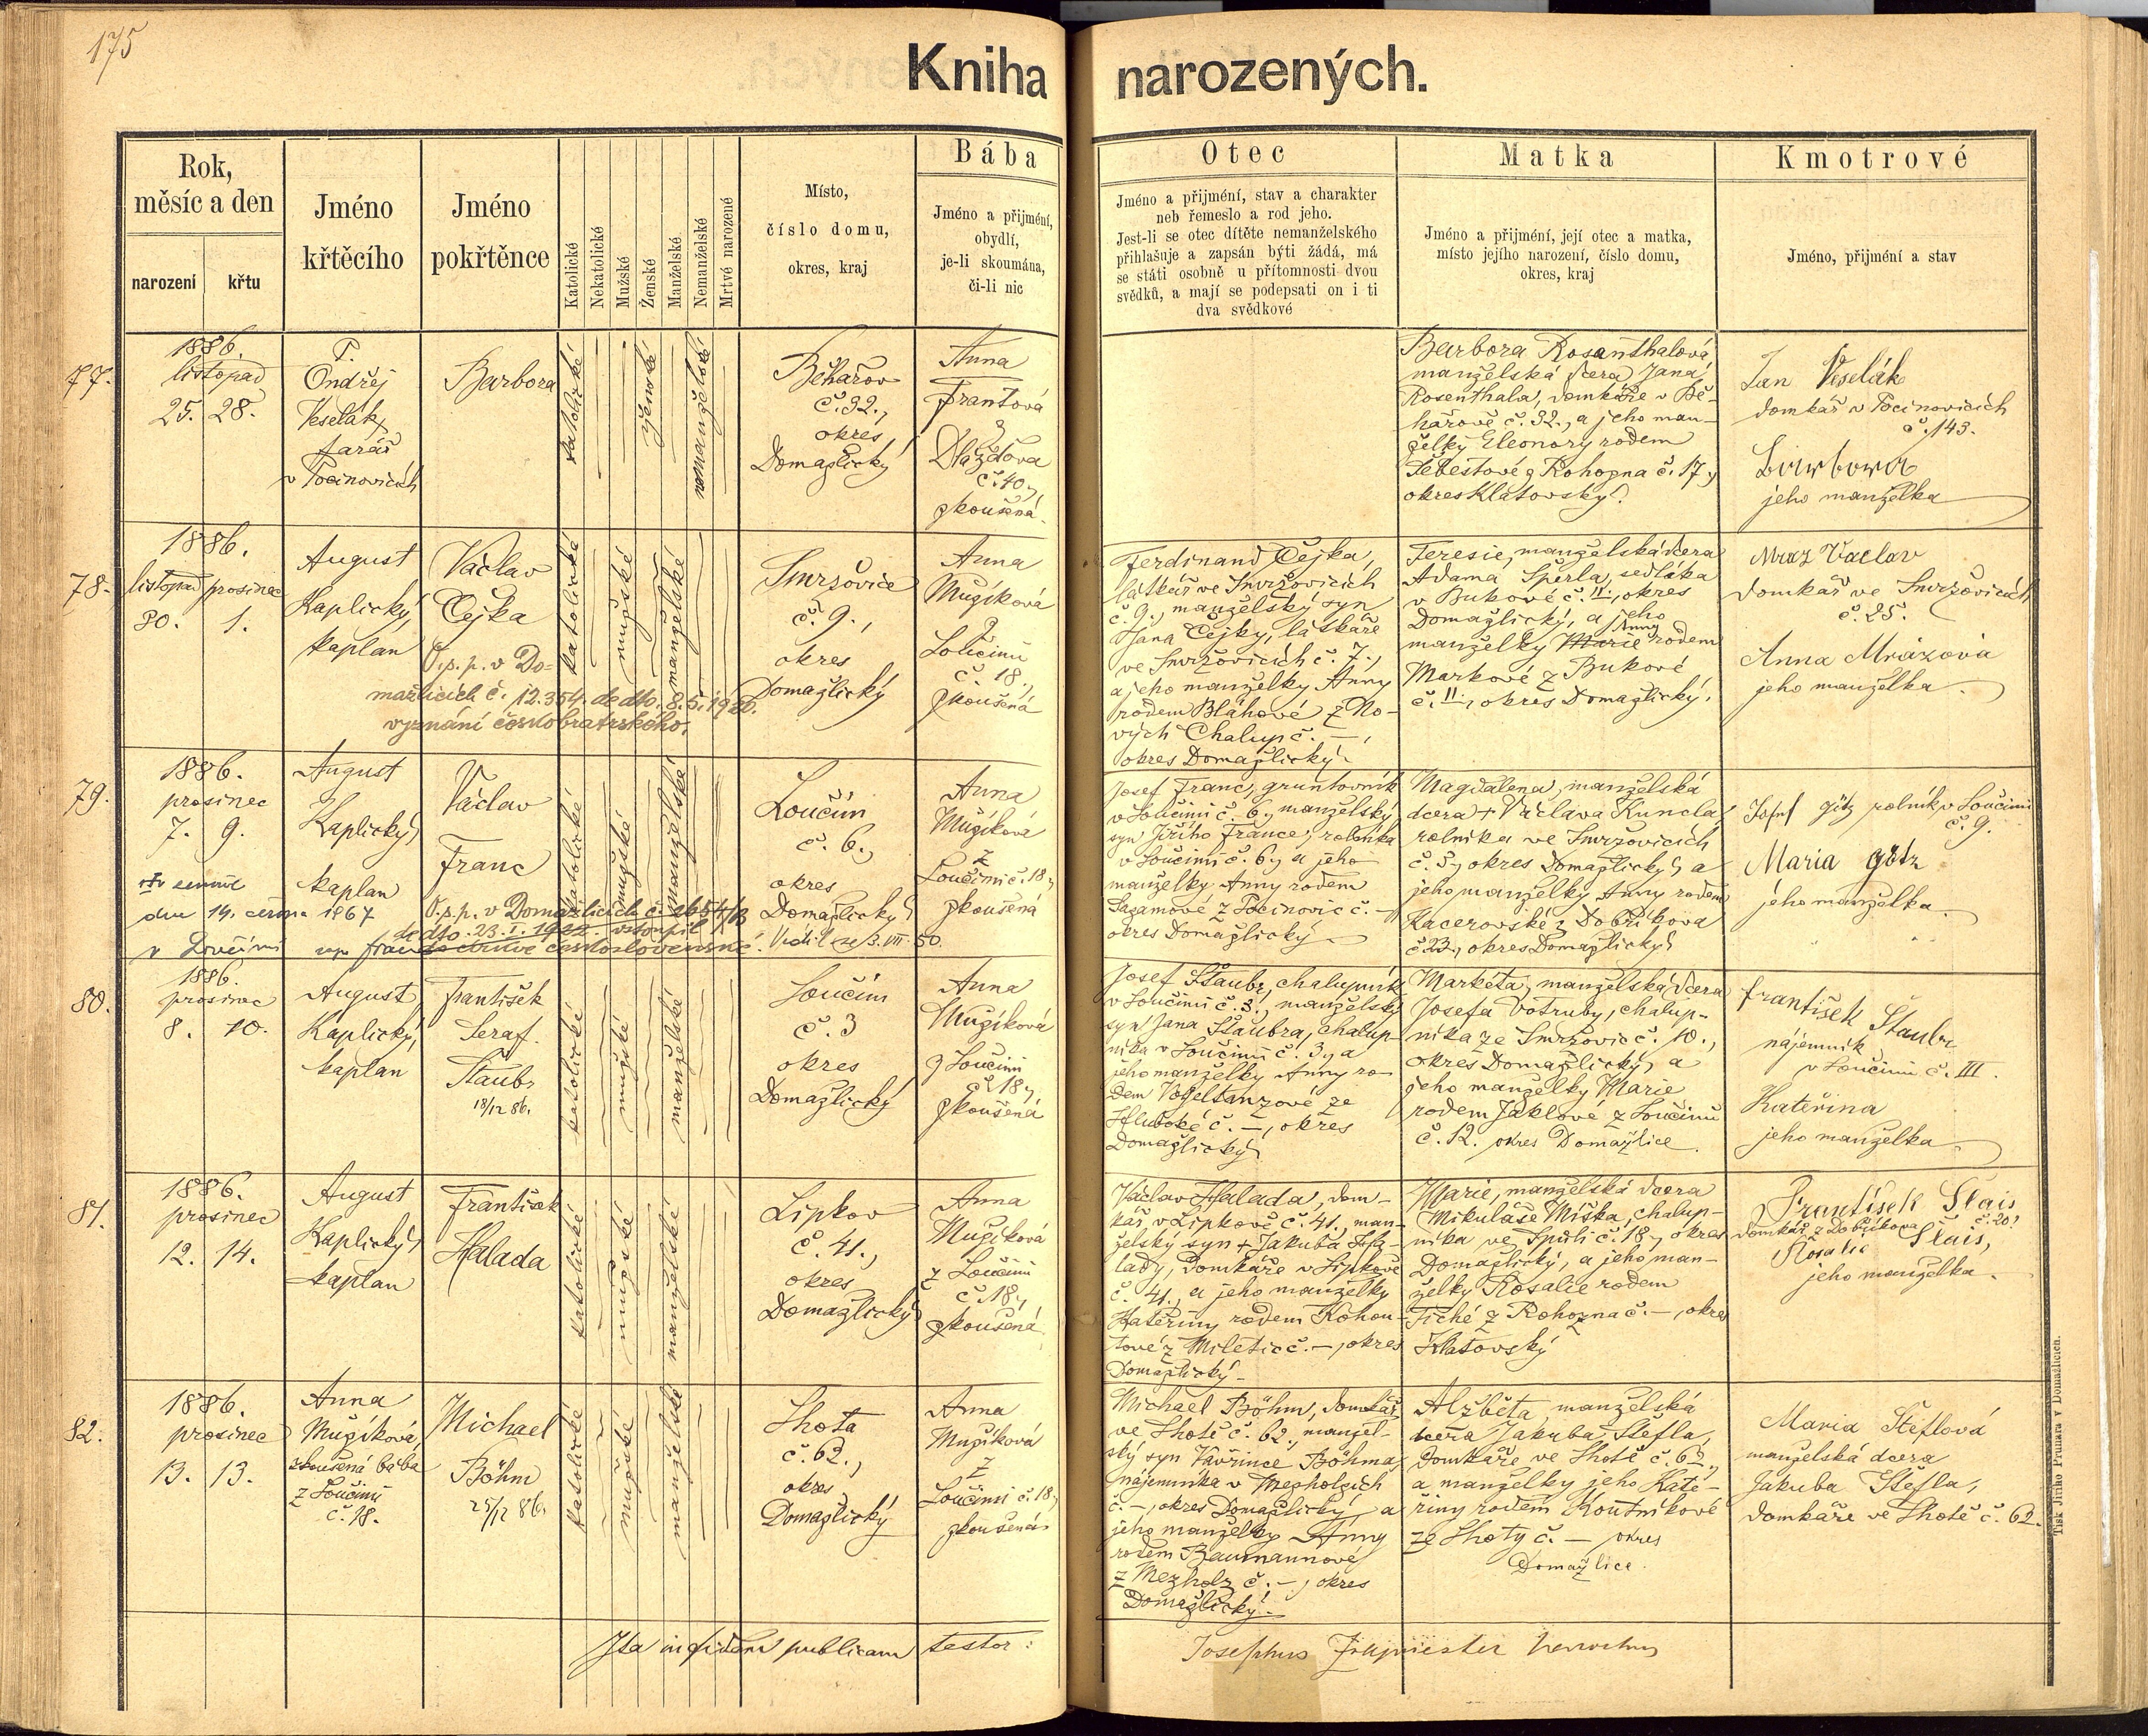 175
Kniha narozených.
Rok,
měsíc a den
narození
křtu
Jméno
křtěcího
Jméno
pokřtěnce
Katolické
Nekatolické
Mužské
Ženské
Manželské
Nemanželské
Mrtvě narozené
Místo,
číslo domu,
okres, kraj
Bába
Jméno a přijmění,
obydlí,
je-li skoumána,
či-li nic
Otec
Jméno a přijmění, stav a charakter
neb řemeslo a rod jeho.
Jest-li se otec dítěte nemanželského
přihlašuje a zapsán býti žádá, má
se státi osobně u přítomnosti dvou
svědků, a mají se podepsati on i ti
dva svědkové
Matka
Jméno a přijmění, její otec a matka,
místo jejího narození, číslo domu,
okres, kraj
Kmotrové
Jméno, přijmění a stav
77.
1886.
listopad
25. 28.
P.
Ondřej
Veselák,
farář
v Pocinovicích
Barbora
katolické
ženské
nemanželské
Běhařov
č. 32.,
okres
Domažlický
Anna
Frantová
z
Dlažďova
č. 40.,
zkoušená.
Barbora Rosenthalová,
manželská dcera Jana
Rosenthala, domkáře v Bě-
hařově č. 32., a jeho man-
želky Eleonory rodem
Šebestové z Rohozna č. 17.,
okres Klatovský.
Jan Veselák
domkář v Pocinovicích
č. 143.
Barbora
jeho manželka
78.
1886.
listopad prosinec
30. 1.
August
Kaplický,
kaplan
Václav
Čejka
O.p.p. v Do-
mažlicích č. 12.354. de dto. 8.5.1926.
vyznání českobratrského.
katolické
mužské
manželské
Smržovice
č. 9.,
okres
Domažlický
Anna
Mužíková
z
Loučimi
č. 18.,
zkoušená
Ferdinand Čejka,
látkář ve Smržovicích
č. 9., manželský syn
Jana Čejky, látkáře
ve Smržovicích č. 7.,
a jeho manželky Anny
rodem Bláhové z No-
vých Chalup č. —,
okres Domažlický.
Teresie, manželská dcera
Adama Šperla, sedláka
v Bukové č. 11., okres
Domažlický, a jeho
Anny
manželky Marie rodem
Markové z Bukové
č. 11., okres Domažlický.
Mraz Vaclav
domkář ve Smržovicích
č. 25.
Anna Mrázová
jeho manželka.
79.
1886.
prosinec
7. 9.
August
Kaplický,
kaplan
Václav
Franc
dne 14. června 1967
v Loučimi
O.p.p. v Domažlicích č.
de dto. 23.I.1922. vstoupil
do církve československé. Vrátil se 3.VII.50.
katolické
mužské
manželské
Loučim
č. 6.,
okres
Domažlický
Anna
Mužíková
z
Loučimi č. 18.,
zkoušená
Josef Franc, gruntovník
v Loučimi č. 6., manželský
syn Jiřího France, rolníka
v Loučimi č. 6., a jeho
manželky Anny rodem
z Pocinovic č. —
okres Domažlický
Magdalena, manželská
dcera + Václava Kuncla,
rolníka ve Smržovicích
č. 5., okres Domažlický, a
jeho manželky Anny rodem
Kacerovské z Dobříkova
č. 23., okres Domažlický.
Josef Götz rolník v Loučimi
č. 9.
Maria Götz
jeho manželka.
80.
1886.
prosinec
8. 10.
August
Kaplický,
kaplan
František
Seraf.
Štaubr
18/12 86.
katolické
mužské
manželské
Loučim
č. 3
okres
Domažlický
Anna
Mužíková
z Loučimi
č. 18.,
zkoušená
Josef Štaubr, chalupník
v Loučimi č. 3., manželský
syn Jana Štaubra, chalup-
níka v Loučimi č. 3., a
jeho manželky Anny ro-
dem Vogeltanzové ze
Hluboké č. —, okres
Domažlický
Markéta, manželská dcera
Josefa Votruby, chalup-
níka ze Smržovic č. 10.,
okres Domažlický, a
jeho manželky Marie
rodem Jáklové z Loučimi
č. 12. okres Domažlice.
František Štaubr
nájemník
v Loučimi č. III.
Kateřina
jeho manželka
81.
1886.
prosinec
12. 14.
August
Kaplický,
kaplan
František
Halada
katolické
mužské
manželské
Lipkov
č. 41.,
okres
Domažlický
Anna
Mužíková
z Loučimi
č. 18.,
zkoušená.
Václav Halada, dom-
kář v Lipkově č. 41., man-
želský syn + Jakuba Ha-
lady, domkáře v Lipkově
č. 41., a jeho manželky
Kateřiny rodem Kohou-
tové z Miletic č. —, okres
Domažlický.
Marie, manželská dcera
Mikuláše Míška, chalup-
níka ve Spůli č. 18., okres
Domažlický, a jeho man-
želky Rosalie rodem
Tiché z Rohozna č. —, okres
Klatovský
František Šlais
domkář z Dobříkova č. 20.
Rosalie Šlais,
jeho manželka.
82.
1886.
prosinec
13. 13.
Anna
Mužíková
zkoušená bába
z Loučimi
č. 18.
Michael
Böhm
25/12 86.
katolické
mužské
manželské
Lhota
č. 62.,
okres
Domažlický
Anna
Mužíková
z
Loučimi č. 18.,
zkoušená
Michael Böhm, domkář
ve Lhotě č. 62., manžel-
ský syn Vavřince Böhma,
nájemníka v Mezholzích
č. —, okres Domažlický, a
jeho manželky Anny
rodem Baumannové
z Mezholz č. —, okres
Domažlický.
Alžběta, manželská
dcera Jakuba Štefla,
domkáře ve Lhotě č. 62.,
a manželky jeho Kate-
řiny rodem Koutníkové
ze Lhoty č. — okres
Domažlice.
Maria Šteflová
manželská dcera
Jakuba Štefla,
domkáře ve Lhotě č. 62.
Ita in fidem publicam testor:
Josephus
Tisk Jiřího Prunara v Domažlicích.